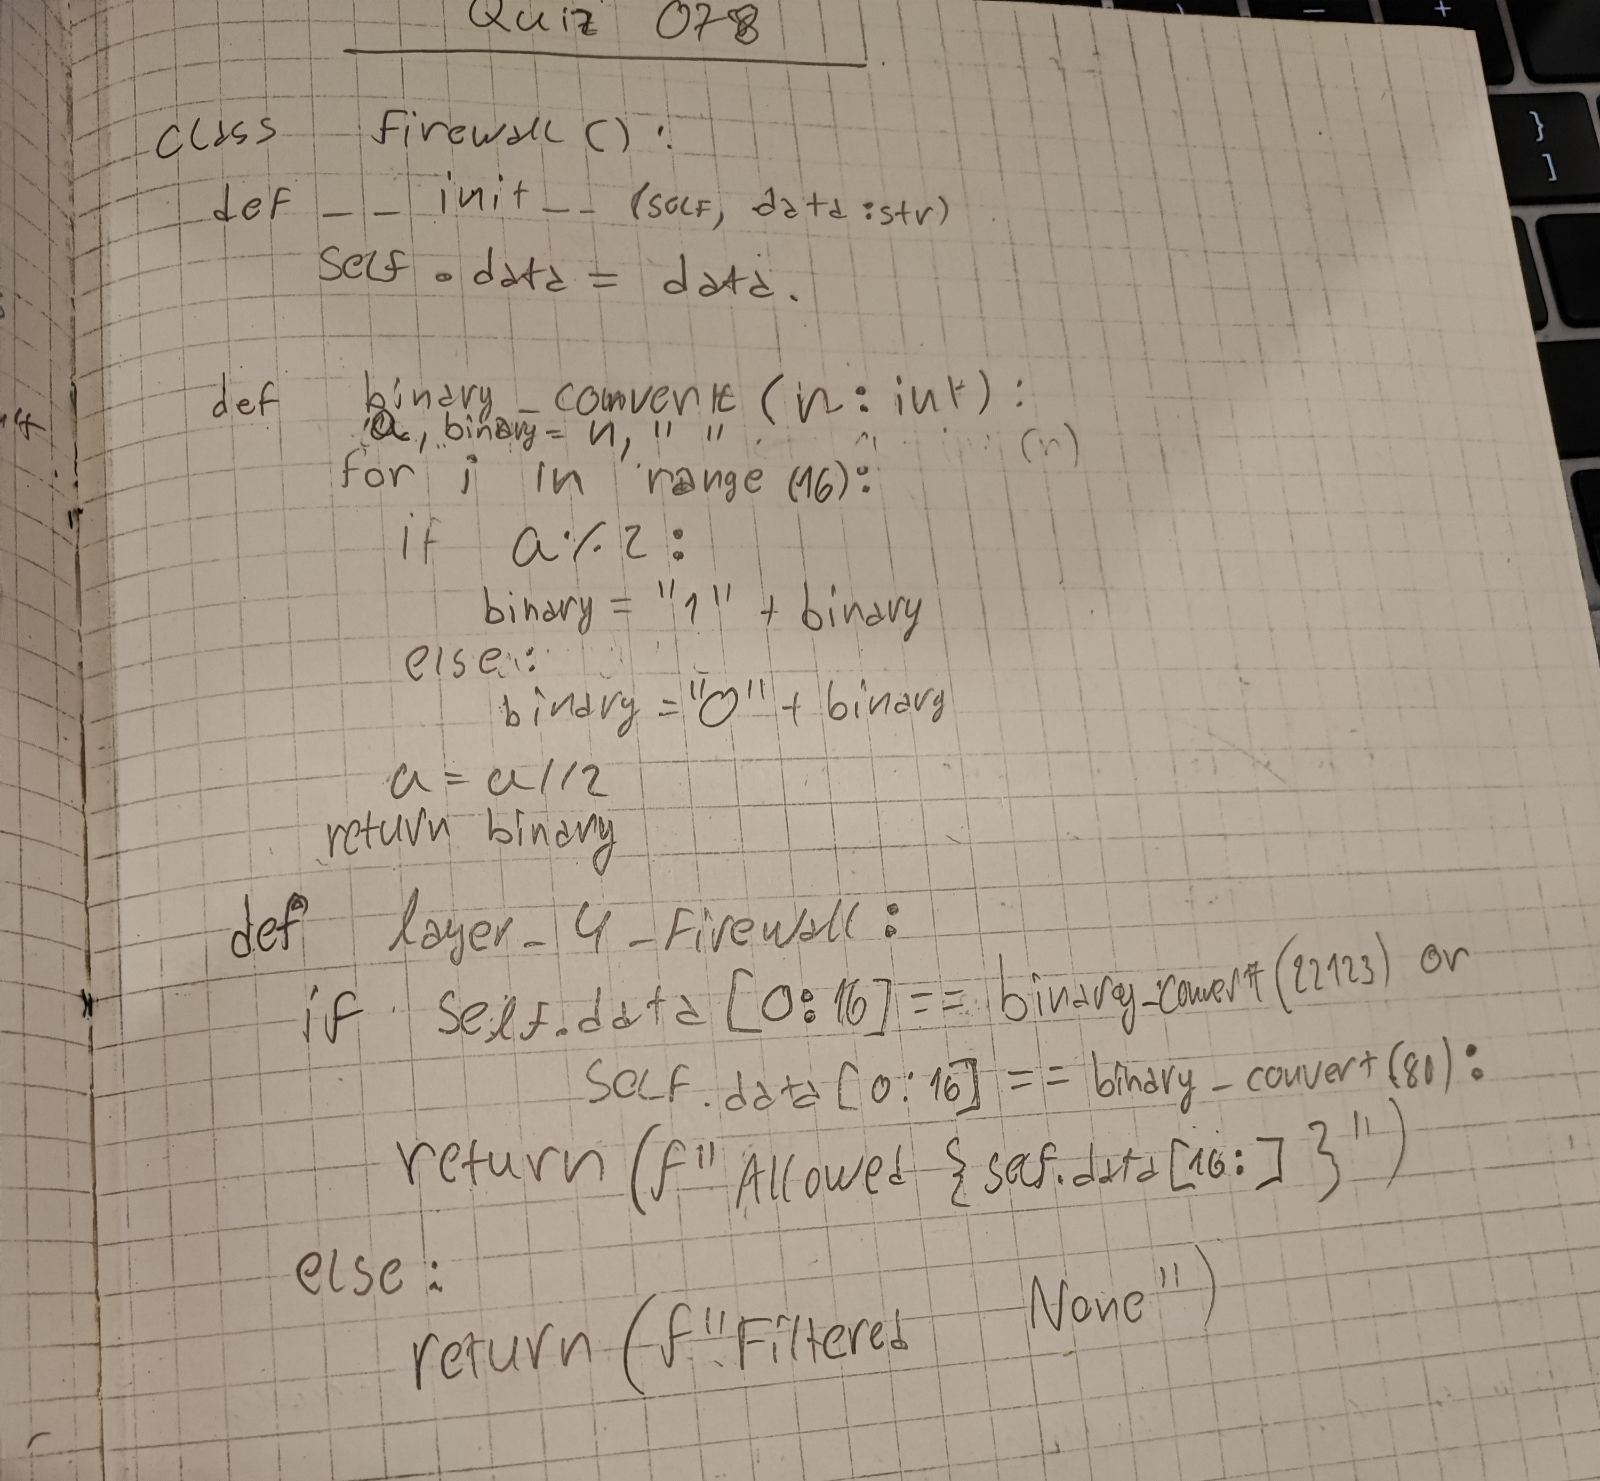 Quiz 078
class firewall():
def __init__(self, data:str)
self.data = data.
def binary_convert(n: int):
a, binary = n, " "
(n)
for i in range (16):
if a%2:
binary = "1" + binary
else:
binary = "0" + binary
a = a//2
return binary
def layer_4_firewall:
if self.data[0:16] == binary_convert(22123) or
self.data[0:16] == binary_convert(80):
return(f"Allowed {self.data[16:]}")
else:
return(f"Filtered None")